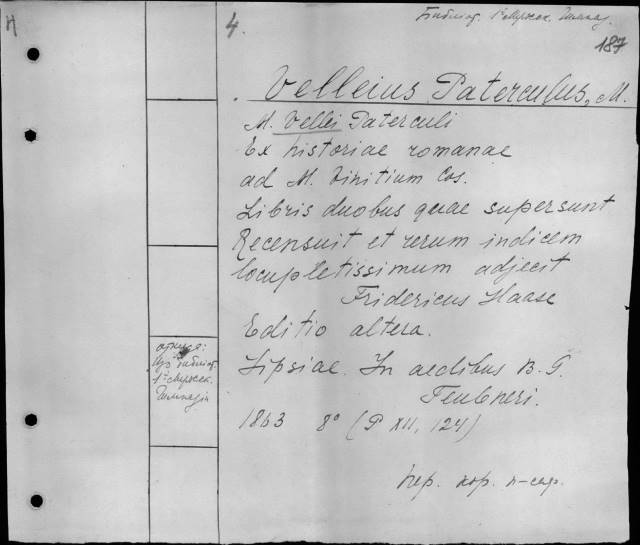 И
4.
Библиот. 1 Мужск. Гимназ.
187
Velleius Paterculus, M.
M. Vellei Paterculi
Ex historiae romanae
ad M. Vinitium Cos.
Libris duobus quae supersunt
Recensuit et rerum indicem
locupletissimum adjecit
Fridericus Haase
Editio altera.
Lipsiae. In aedibus B. G.
Teubneri.
1863 8° (P XII, 124)
откуда:
Из библиот.
1ой Мужск.
Гимназiи
пер. кор. к-сар.